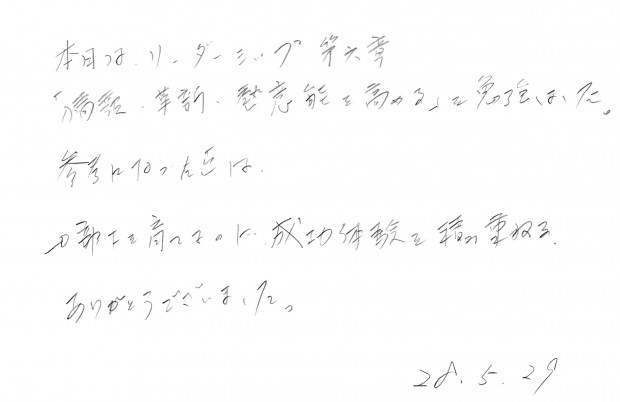 本日は、リーダーシップ 第六章
革新・ 能を高める」を勉強しました。
参考になった点は、
部下を育てるのに、成功体験を積み重ねる。
ありがとうございました。
28.5.29